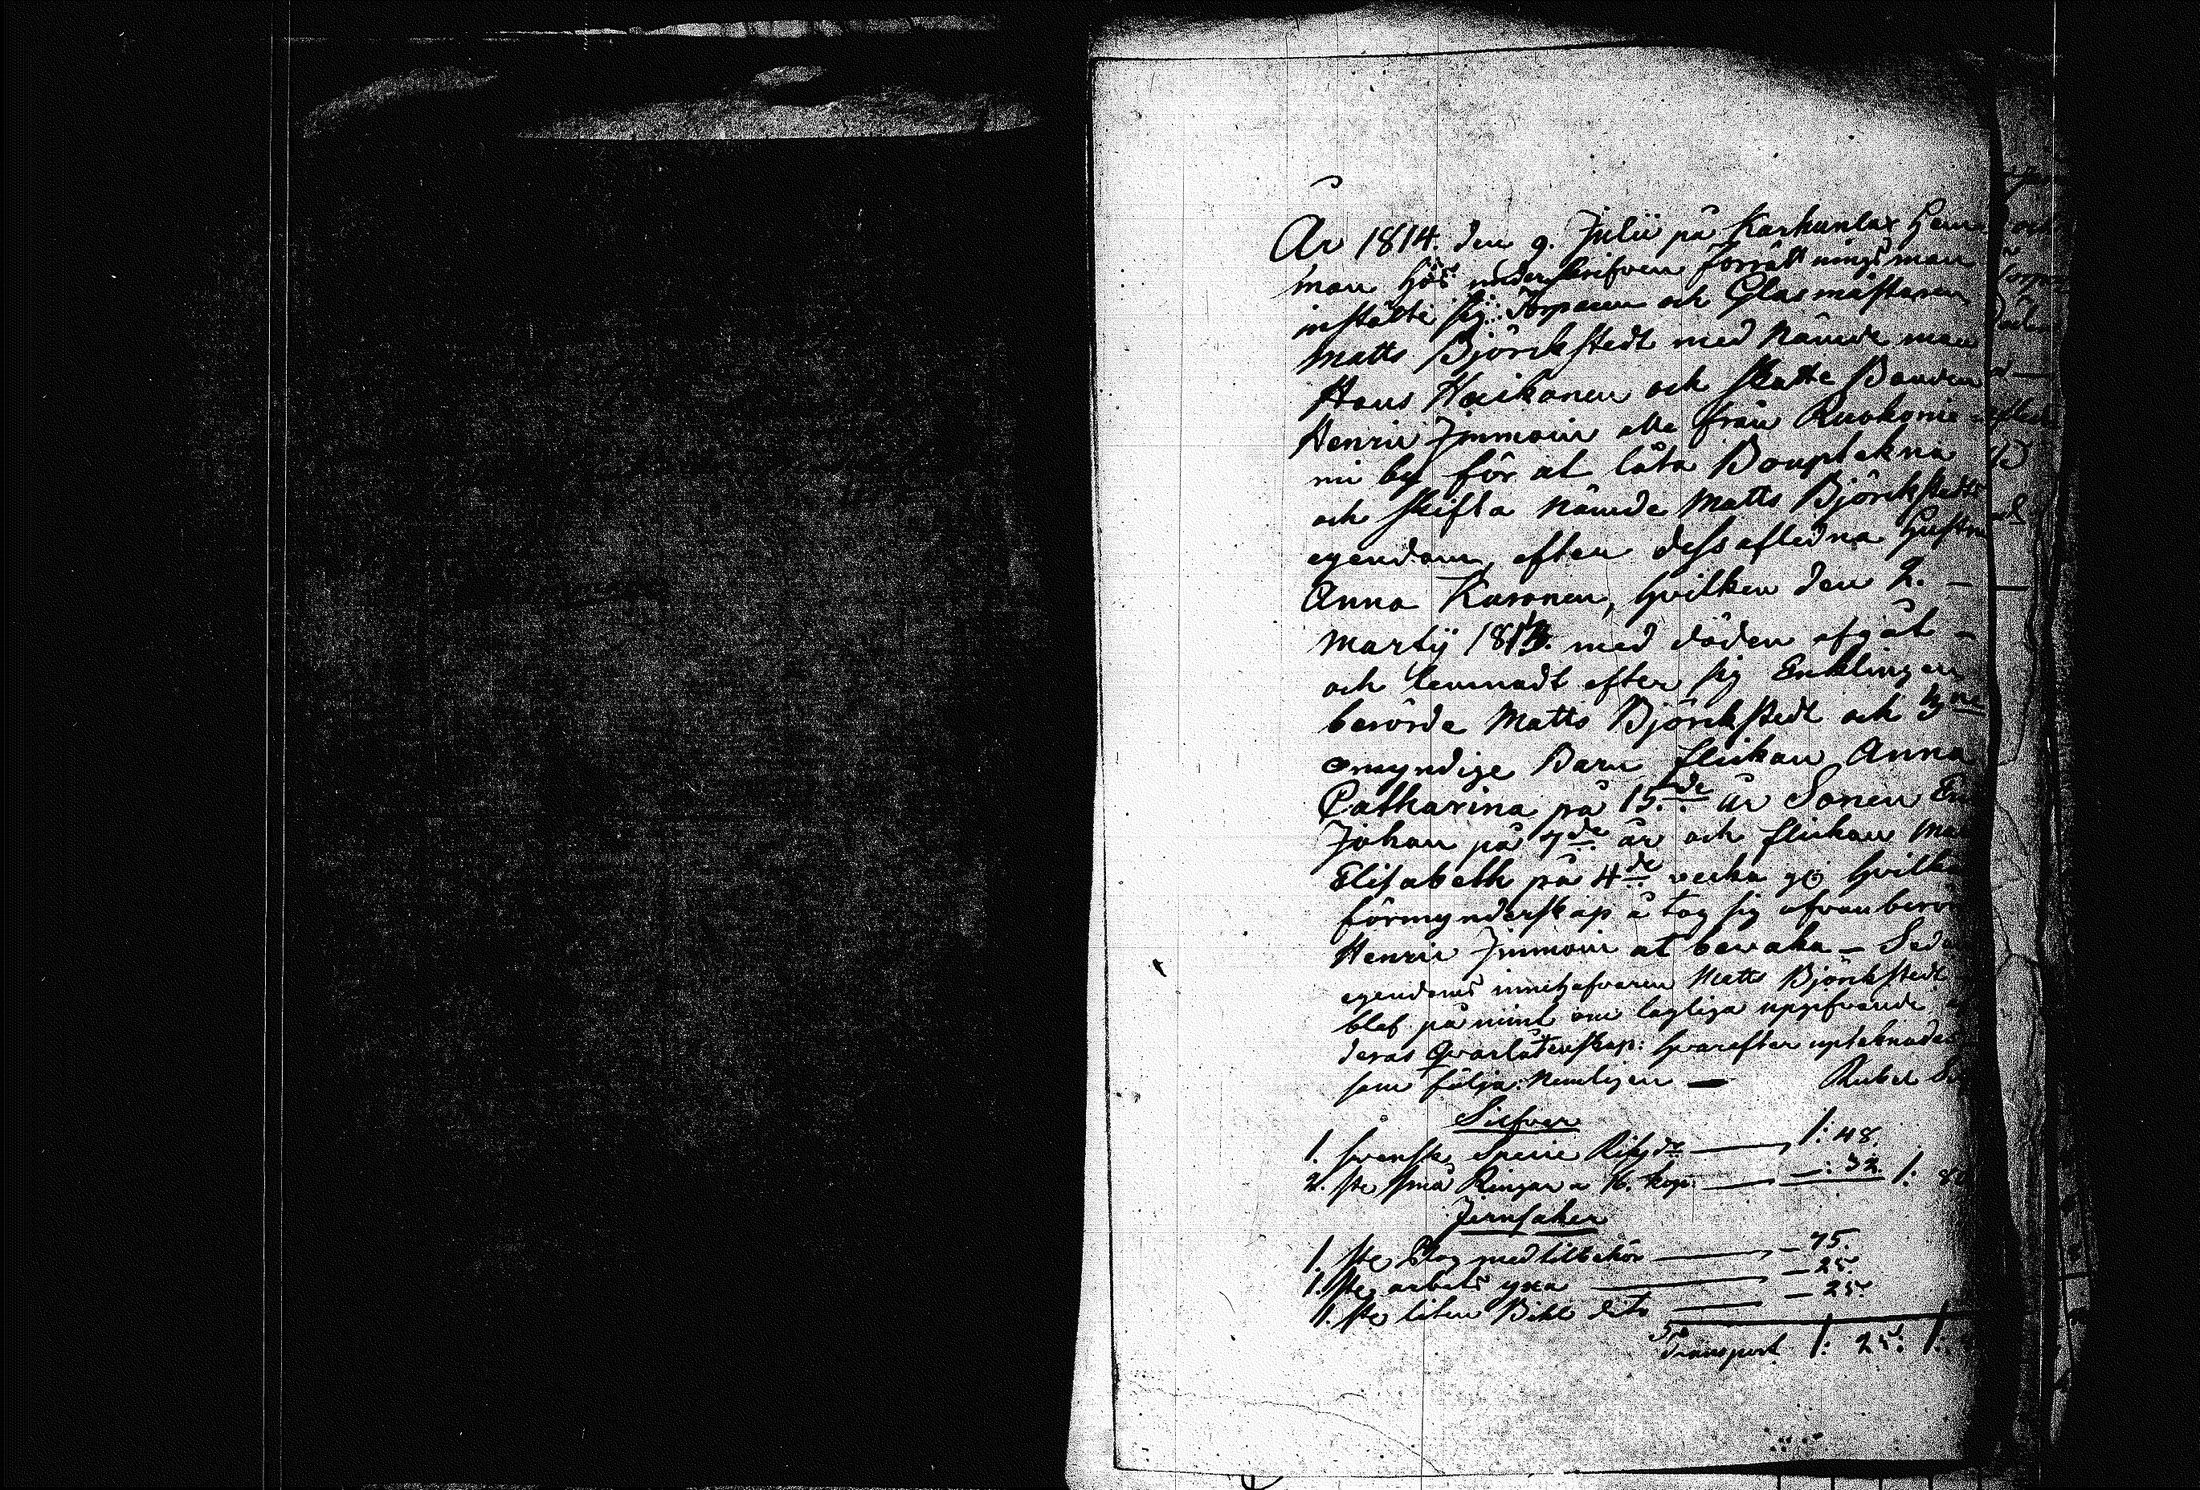 År 1814. den 9. Julii på Karhunlax Hem
man hos underskrifven förrättningsman
instälte sig Torparen och Glasmästaren
Matts Björckstedt med Nämde man
Hans Haikonen och Skatte Bonden
Henric Immoin alla från Ruokonie
mi by för at låta Boupteckna
och skifta Nämde Matts Björckstedts
egendom, efter dess afledna Hustru
Anna Kuronen, hvilken den 2. –
Martij 1813. med döden afgåt –
och lemnadt efter sig Enklingen
berörde Matts Björckstedt och 3ne
omyndige Barn flickan Anna
Catharina på 15de år Sonen
Johan på 7de år och flickan
Elisabeth på 4de vecka
förmynderskap åtog sig ofvanberör
Henric Immoin at bevaka –
egendoms innehafvaren Matts Björckstedt
blef påmint om lagliga uppfvande
deras Qvarlåtenskap: hvarefter upteknades
som följa: Nemligen — Rubel
Silfver
1. Svensk Specie Riksdr — 1: 48.
2. ste små Ringar a 16. kop — –: 32. 1: 80
Jernsaker
1. ste Plog med tilbehör — – 75.
1. ste arbets yxa — – 25.
1. ste liten Bihl dito — – 25
Transport 1: 25. 1: